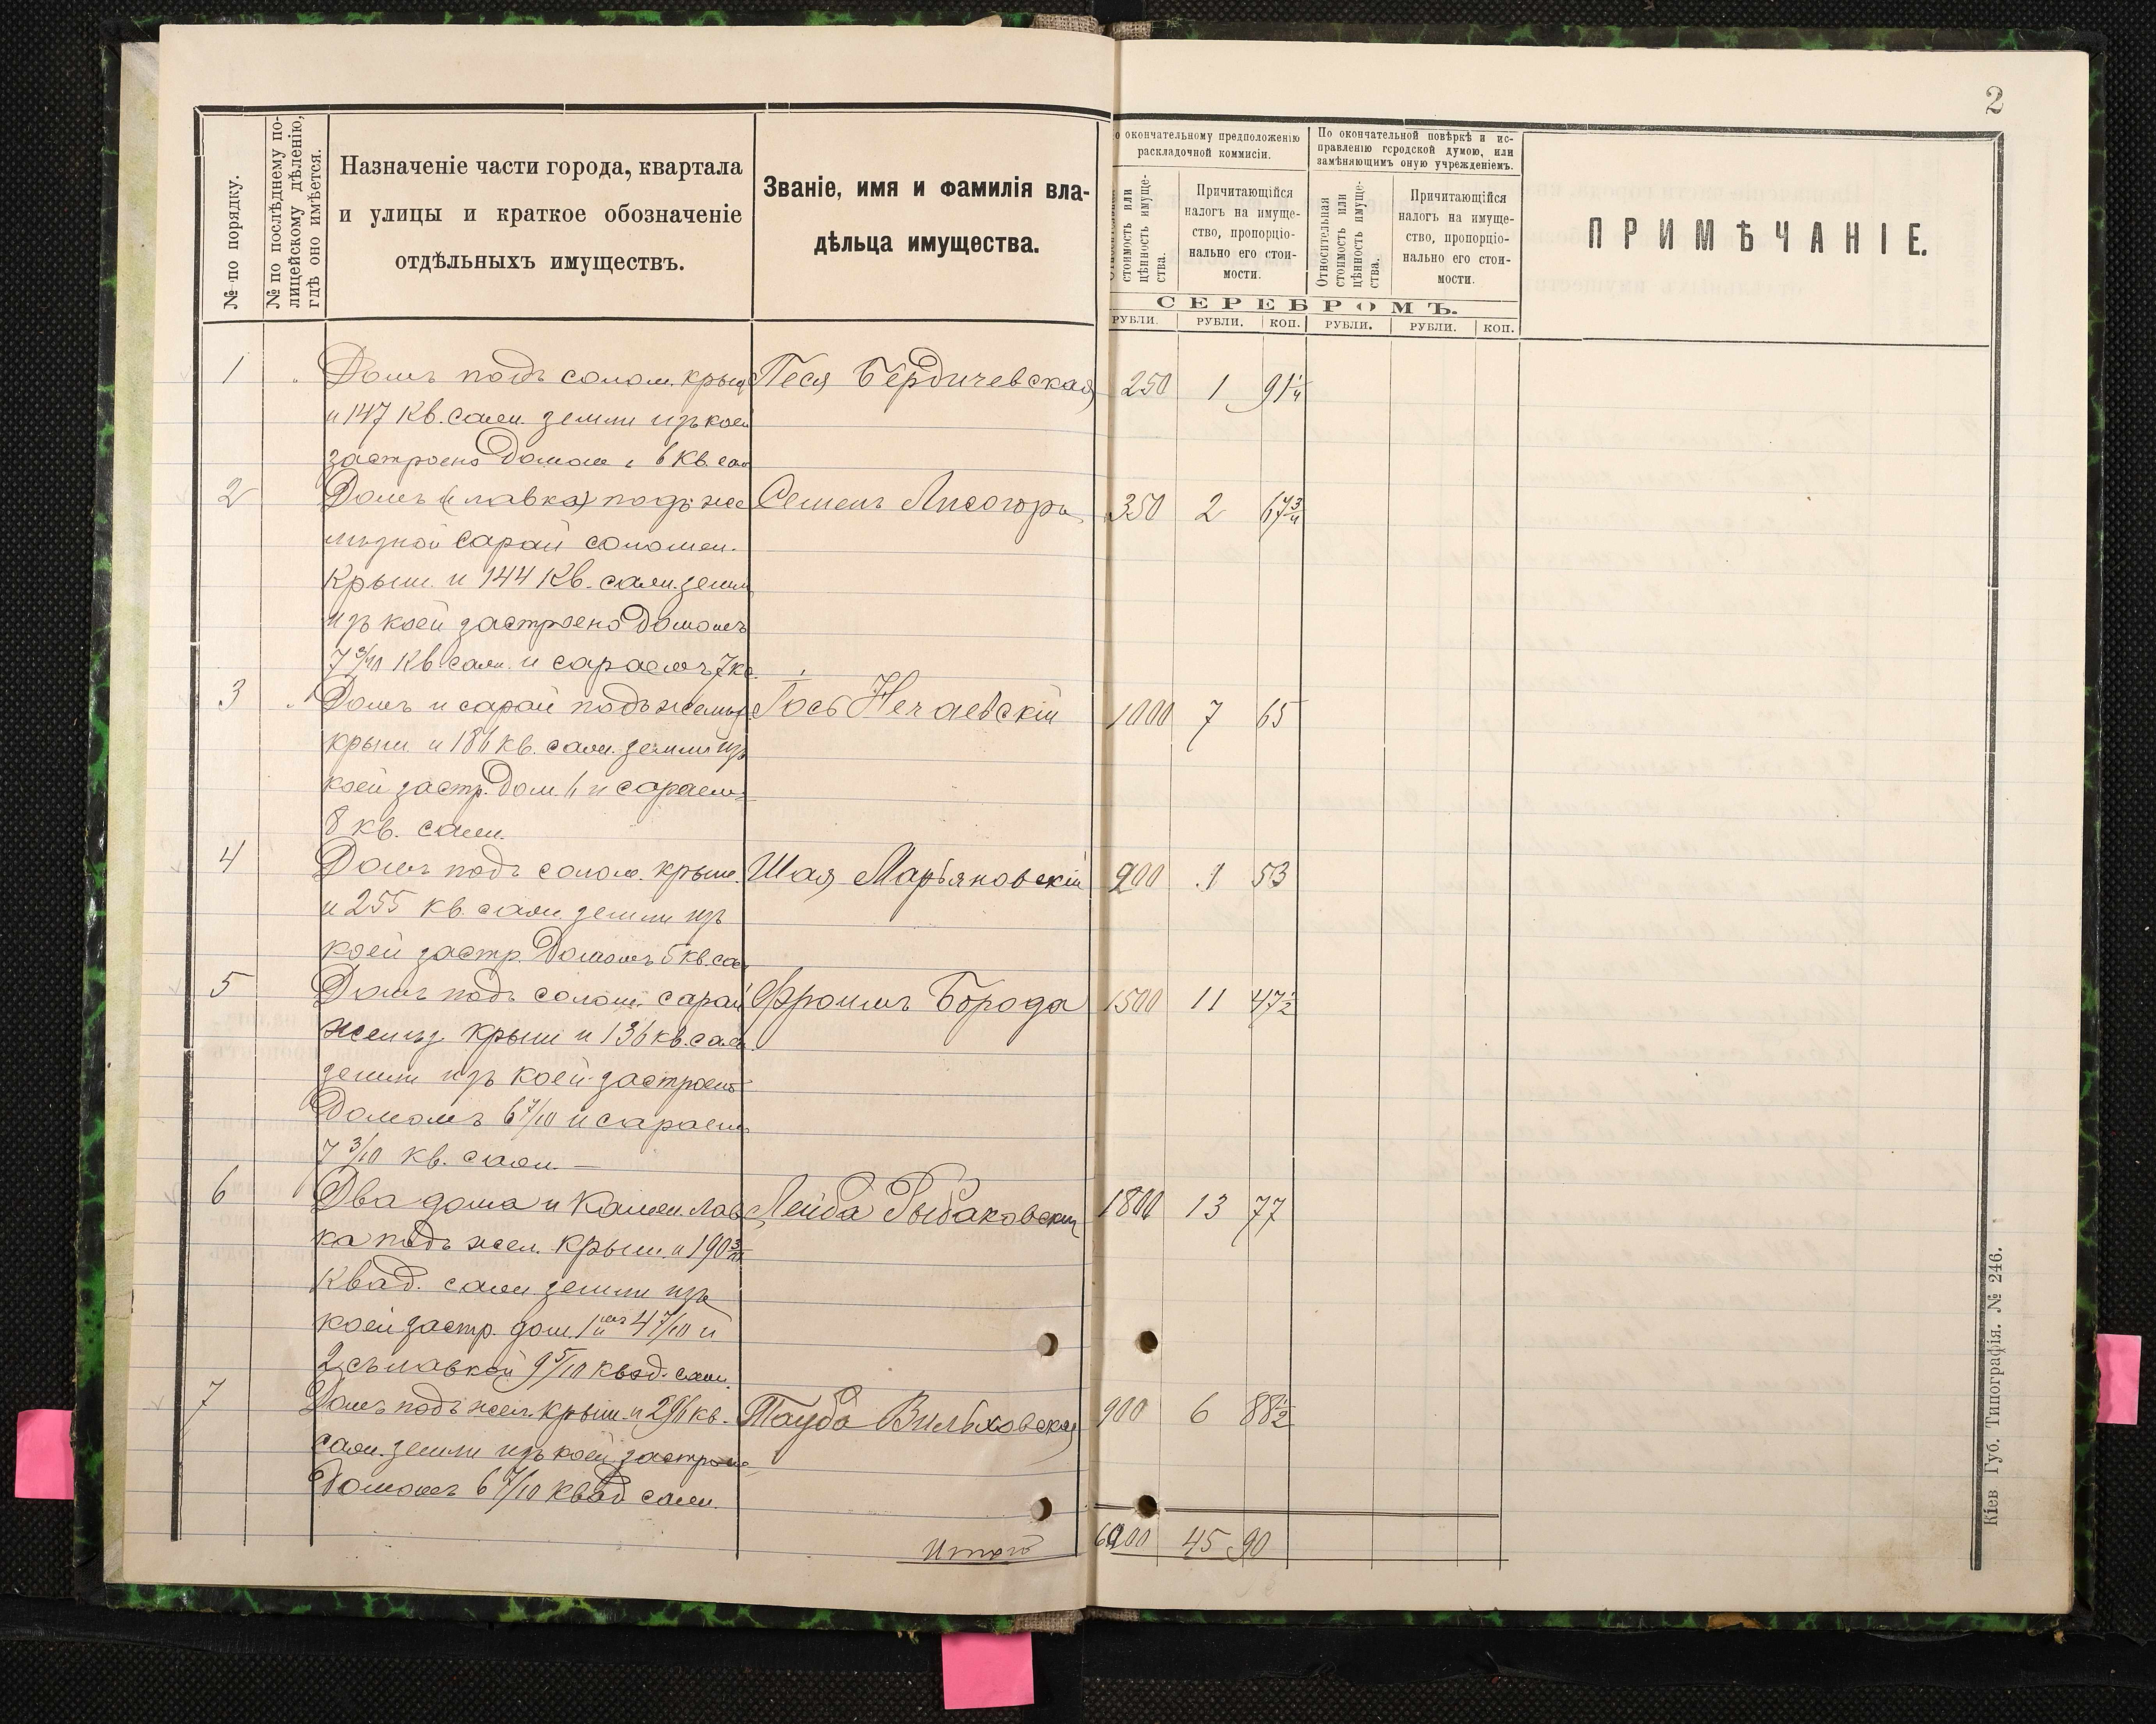 2
№ по порядку.
№ по послѣднему по-
лицейскому дѣленію,
гдѣ оно имѣется.
Назначеніе части города, квартала
и улицы и краткое обозначеніе
отдѣльныхъ имуществъ.
Званіе, имя и фамилія вла-
дѣльца имущества.
о окончательному предположенію
раскладочной коммисіи.
По окончательной повѣркѣ и ис-
правленію городской думою, или
замѣняющимъ оную учрежденіемъ.
стоимость или
цѣнность имуще-
ства.
Причитающійся
налогъ на имуще-
ство, пропорціо-
нально его стои-
мости.
Относительная
стоимость или
цѣнность имуще-
ства.
Причитающійся
налогъ на имуще-
ство, пропорціо-
нально его стои-
мости.
СЕРЕБРОМЪ.
РУБЛИ. РУБЛИ. КОП. РУБЛИ. РУБЛИ. КОП.
ПРИМѢЧАНІЕ.
1 Домъ подъ солом. крыш Песя Бердичевская 250 1 91¼
и 147 кв. саж. земли изъ коей
застроено домом 6 кв. саж
2 Домъ (и лавка) подъ же Семенъ Лисогоръ 350 2 67¾
лѣзной сарай соломен.
крыш. и 144 кв. саж. земли
изъ коей застроено домомъ
7 9/10 кв. саж. и сараемъ 7 кв.
3 Домъ и сарай подъ желѣз Іось Нечаевскій 1000 7 65
крыш. и 186 кв. саж. земли изъ
коей застр. дом. 6 и сараемъ
8 кв. саж.
4 Домъ подъ солом. крыш. Шая Марьяновскій 200 1 53
и 255 кв. саж. земли изъ
коей застр. домомъ 5 кв. саж
5 Домъ подъ солом. сарай Фроимъ Борода 1500 11 47½
желѣз. крыш и 136 кв. саж
земли изъ коей застроено
домомъ 6 7/10 и сараем
7 3/10 кв. саж. —
6 Два дома и камен. лав Лейба Рыбаковскій 1800 13 77
ка подъ жел. крыш. и 190 3/10
квад. саж земли изъ
коей застр. дом. 1мъ 4 7/10 и
2 съ лавкой 9 5/10 квад. саж.
7 Домъ подъ жел. крыш. и 296 кв. Тауба Вильховская 900 6 88½
саж. земли изъ коей застрое
домомъ 6 7/10 квад саж.
Итого 6000 45 90
Кіев Губ. Типографія. № 246.